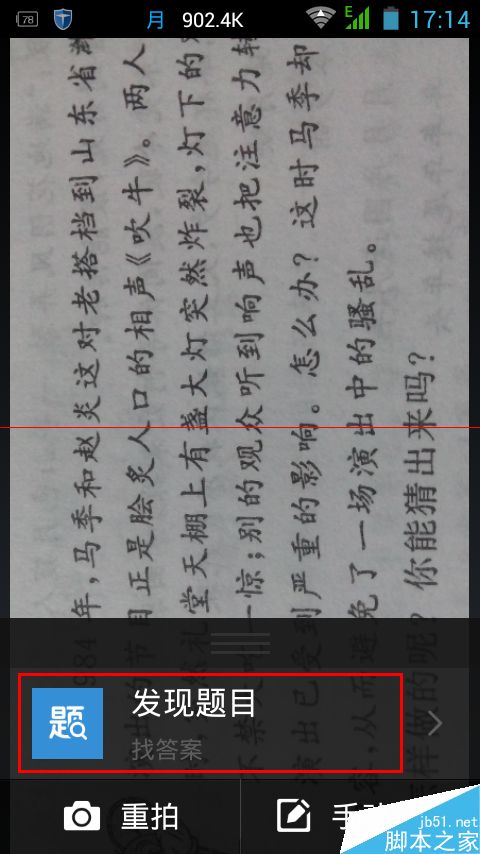 78
月 902.4K
E
17:14
984年,马季和赵炎这对老搭档到山东省
目正是脍炙人口的相声《吹牛》。两人
堂天棚上有盏大灯突然炸裂,灯下的
一惊;别的观众听到响声也把注意力转
演出已受到严重的影响。怎么办?这时马季却
,从而避免了一场演出中的骚乱。
怎样做的呢?你能猜出来吗?
题
发现题目
找答案
重拍
手
jb51.net
脚本之家